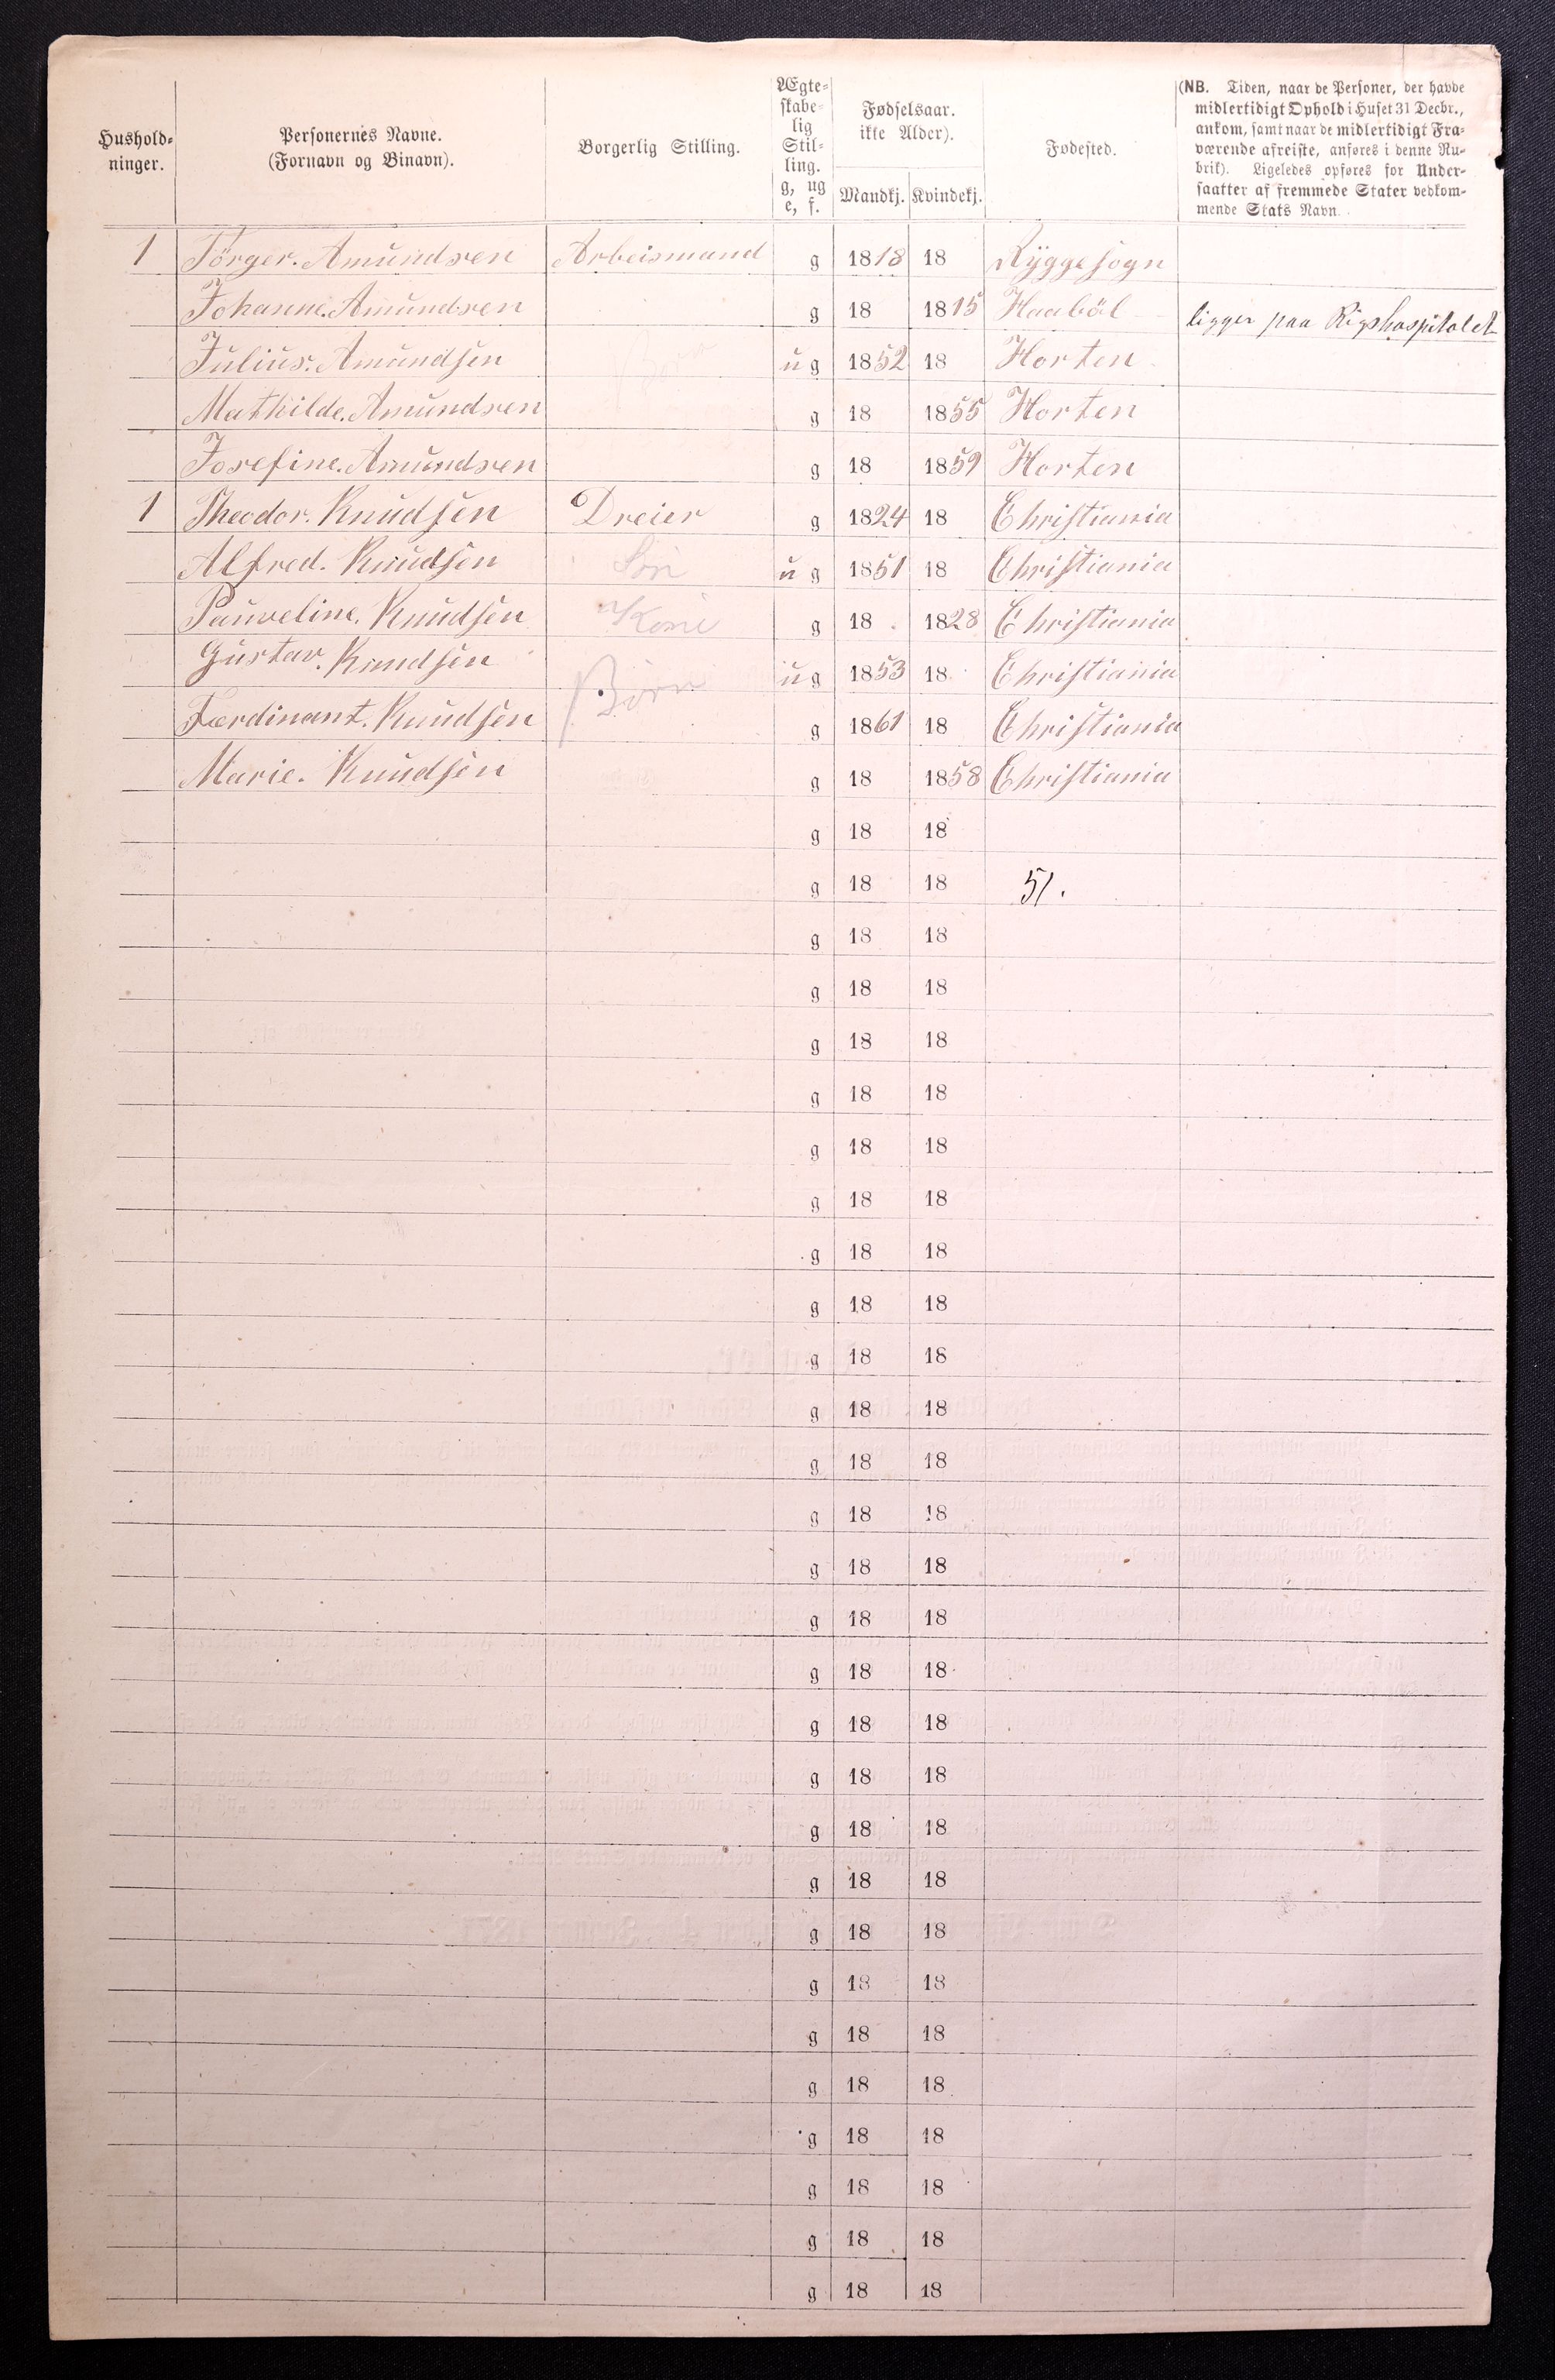 Hushold-
ninger.
Personernes Navne.
(Fornavn og Binavn).
Borgerlig Stilling.
Ægte-
skabe-
lig
Stil-
ling.
g, ug
e, f.
Fødselsaar.
ikke Alder).
Mandkj. Kvindekj.
Fødested.
(NB. Tiden, naar de Personer, der havde
midlertidigt Ophold i Huset 31 Decbr.,
ankom, samt naar de midlertidigt Fra-
værende afreiste, anføres i denne Ru-
brik). Ligeledes opføres for Under-
saatter af fremmede Stater vedkom-
mende Stats Navn.
1 Törger. Amundsen Arbeismand g 1818 18 Ryggesogn
Johanne. Amundsen g 18 1815 Haaböl ligger paa Rigshospitalet
Julius. Amundsen ug 1852 18 Horten
Mathilde. Amundsen g 18 1855 Horten
Josefine. Amundsen g 18 1859 Horten
1 Theodor. Knudsen Dreier g 1824 18 Christiania
Alfred. Knudsen Søn ug 1851 18 Christiania
Pauveline. Knudsen Kone g 18 1828 Christiania
Gustav. Knudsen Børn ug 1853 18 Christiania
Færdinant. Knudsen g 1861 18 Christiania
Marie. Knudsen g 18 1858 Christiania
g 18 18
g 18 18 51.
g 18 18
g 18 18
g 18 18
g 18 18
g 18 18
g 18 18
g 18 18
g 18 18
g 18 18
g 18 18
g 18 18
g 18 18
g 18 18
g 18 18
g 18 18
g 18 18
g 18 18
g 18 18
g 18 18
g 18 18
g 18 18
g 18 18
g 18 18
g 18 18
g 18 18
g 18 18
g 18 18